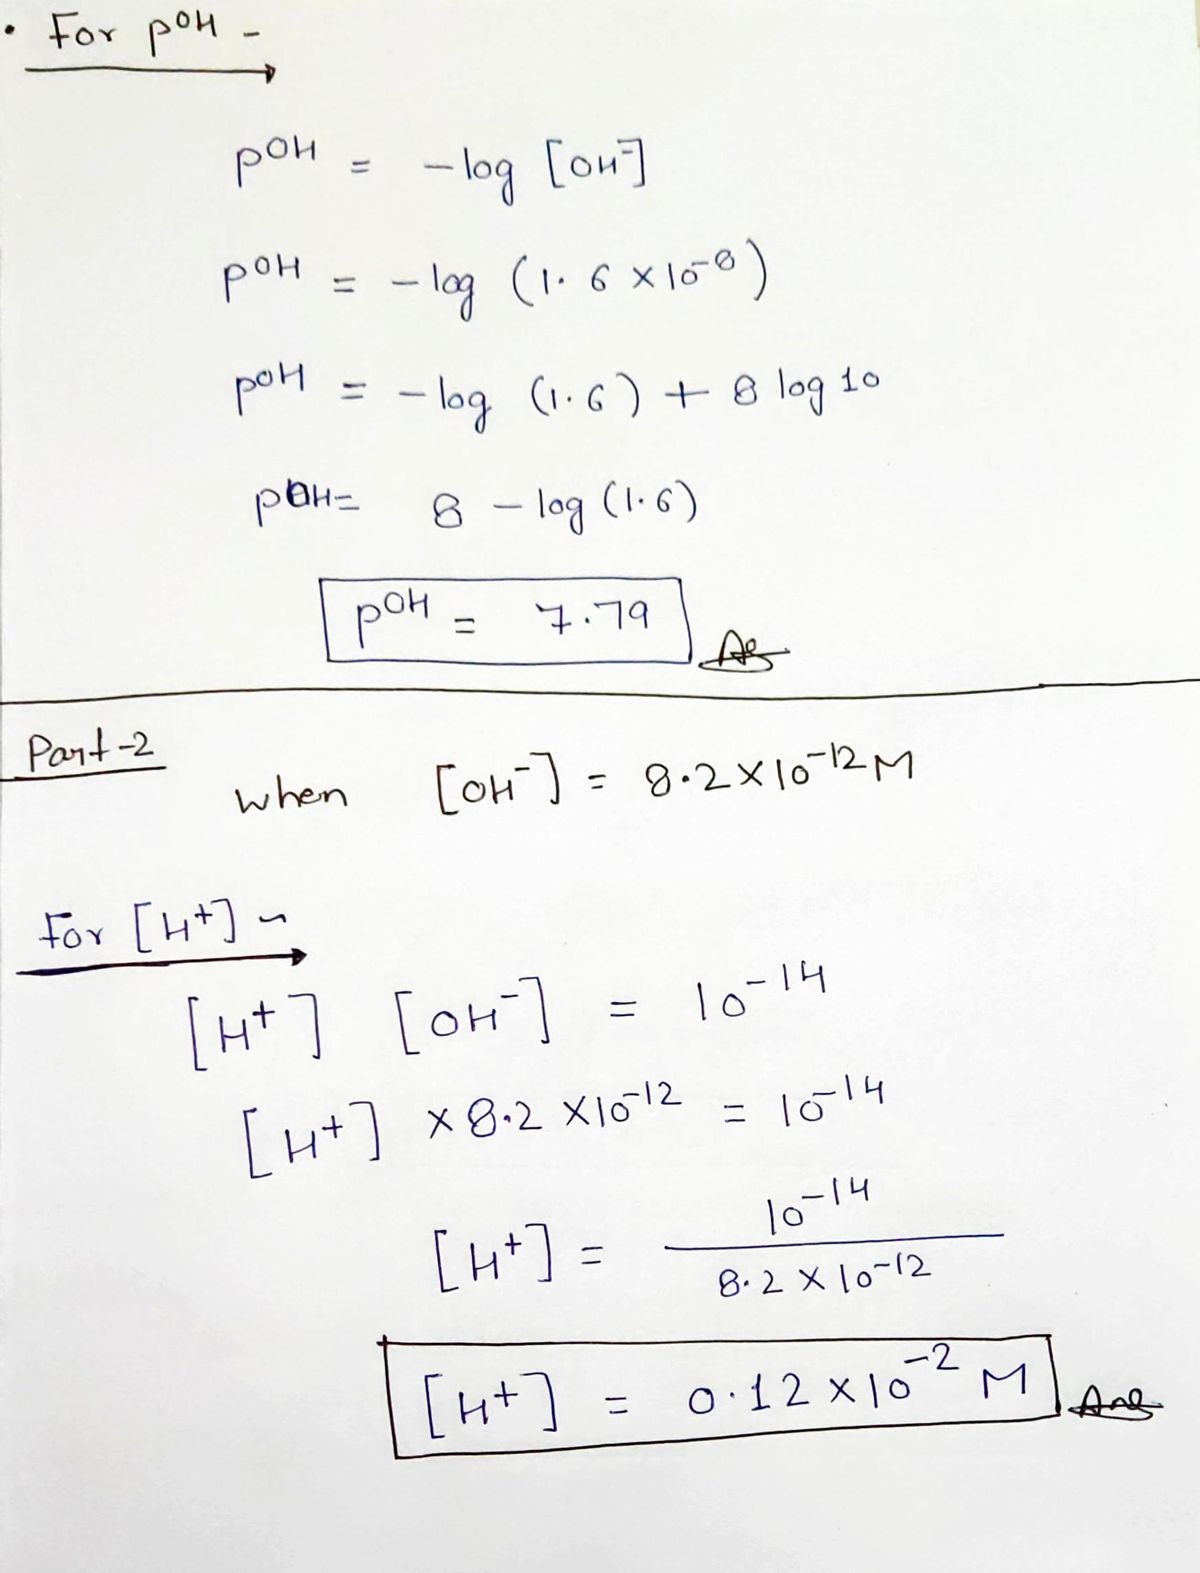 • For pOH -
pOH = -log [OH⁻]
pOH = -log (1.6 × 10⁻⁸)
pOH = -log (1.6) + 8 log 10
pOH = 8 - log (1.6)
pOH = 7.79
Part-2
when [OH⁻] = 8.2 × 10⁻¹² M
For [H⁺] ~
[H⁺] [OH⁻] = 10⁻¹⁴
[H⁺] × 8.2 × 10⁻¹² = 10⁻¹⁴
[H⁺] = 10⁻¹⁴ / 8.2 × 10⁻¹²
[H⁺] = 0.12 × 10⁻² M Ans